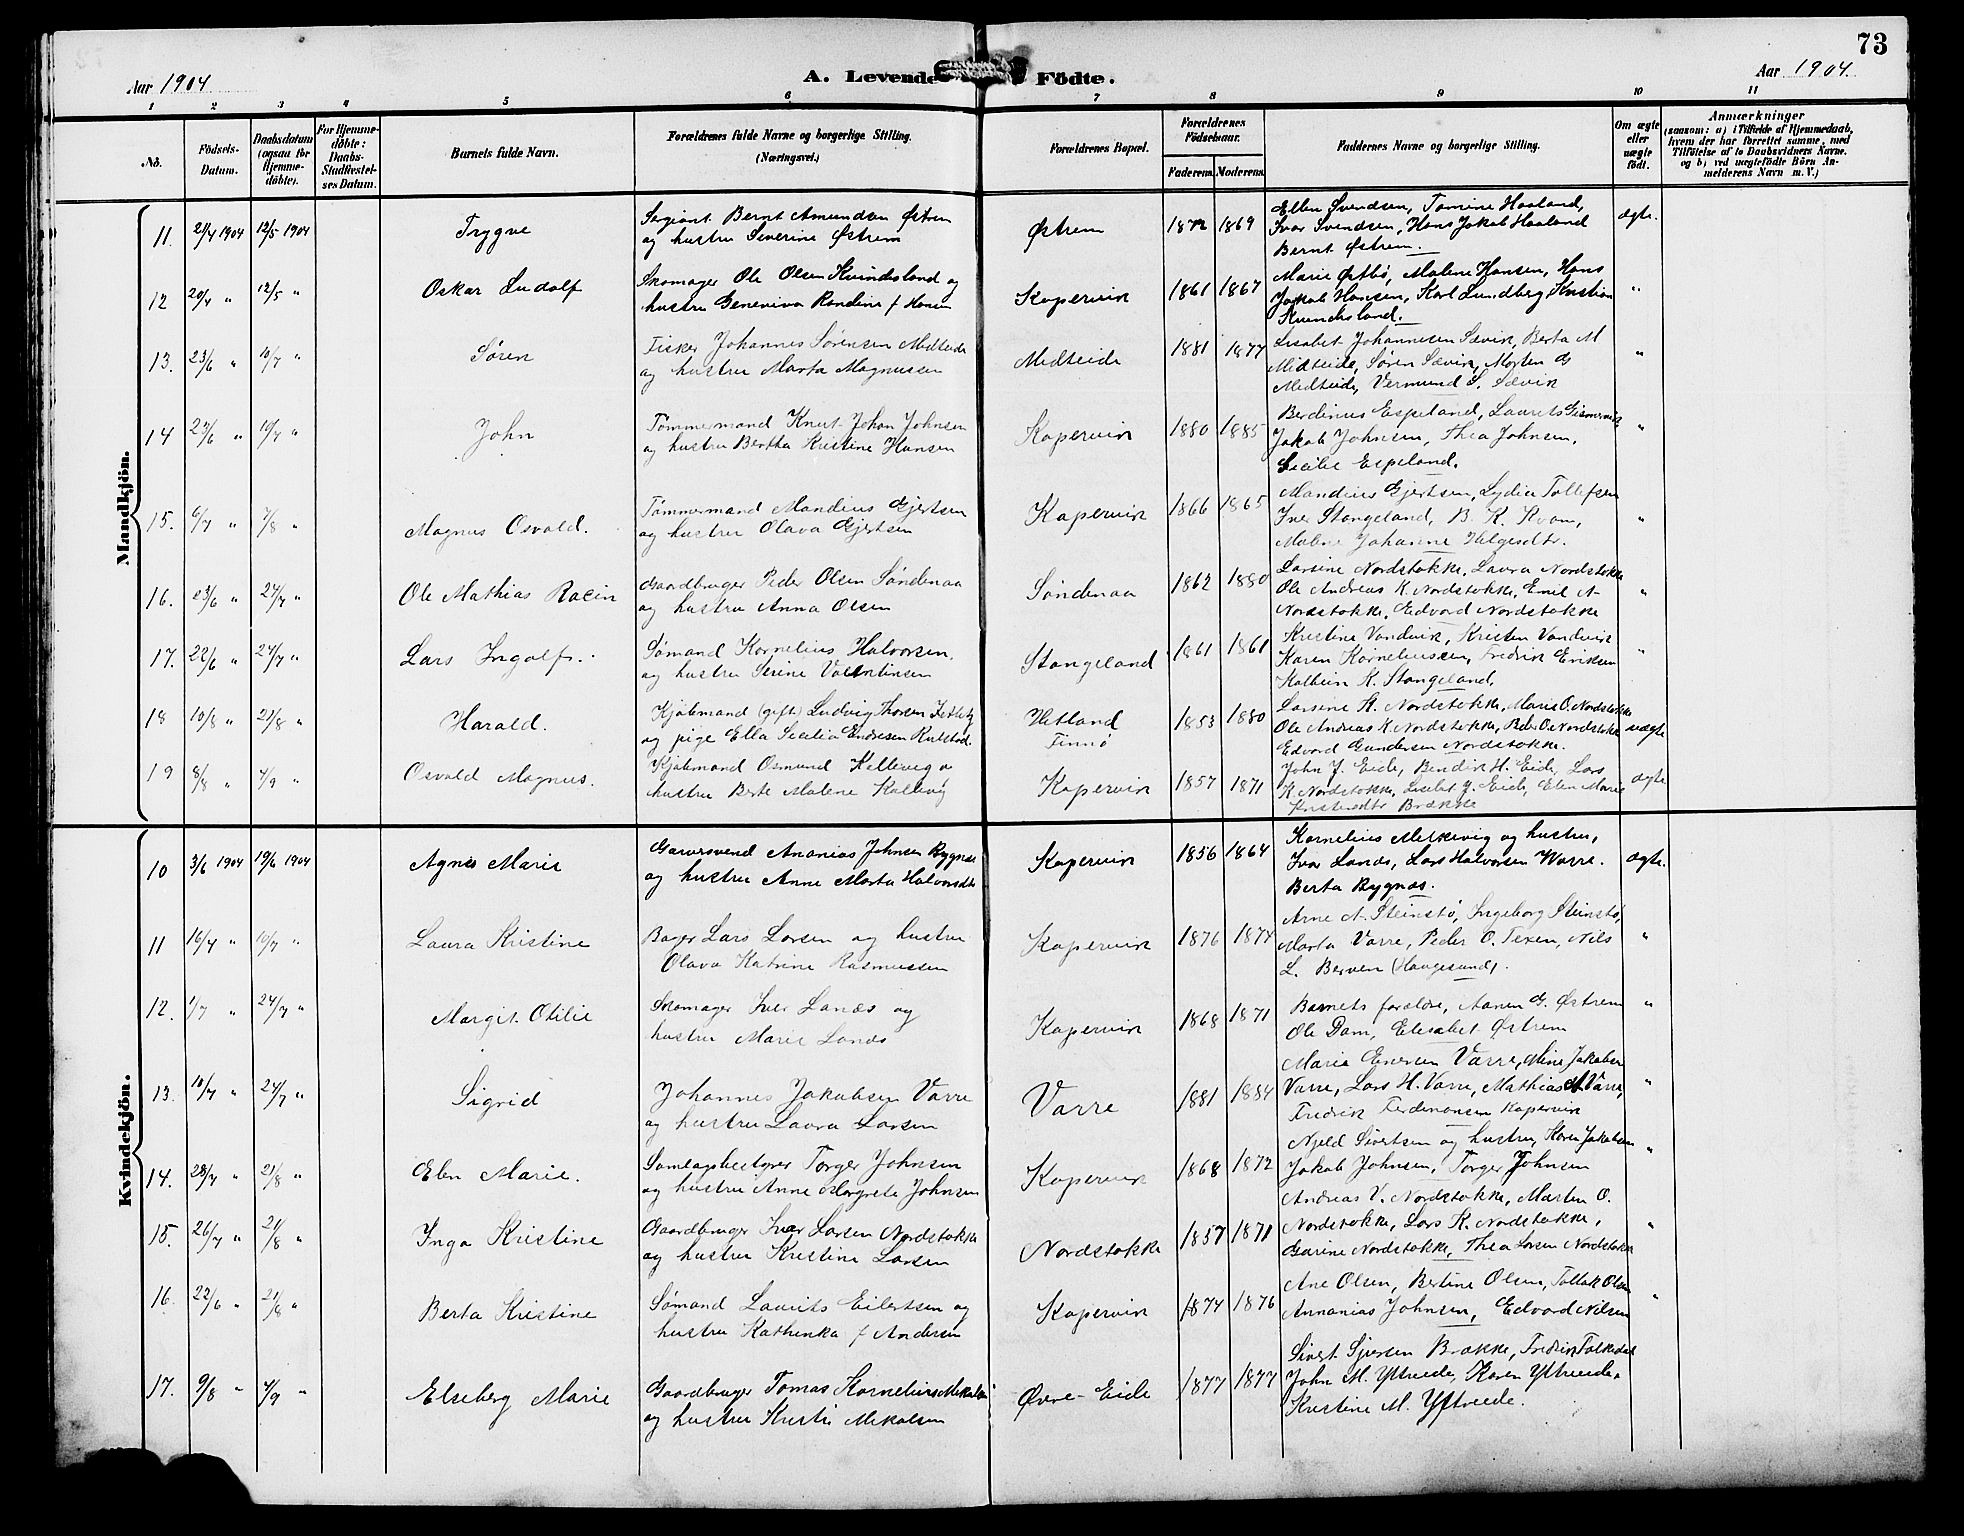 73
Aar 1904
A. Levende Födte.
Aar 1904.
1 2 3 4 5 6 7 8 9 10 11
No.
Födsels-
Datum.
Daabsdatum
(ogsaa for
Hjemme-
döbte).
For Hjemme-
döbte:
Daabs-
Stadfæstel-
ses Datum.
Barnets fulde Navn.
Forældrenes fulde Navne og borgerlige Stilling.
(Næringsvei.)
Forældrenes Bopæl.
Forældrenes
Födselsaar.
Faderens. Moderens.
Faddernes Navne og borgerlige Stilling.
Om ægte
eller
uægte
födt.
Anmærkninger
(saasom: a) i Tilfælde af Hjemmedaab,
hvem der har forrettet samme, med
Tilföielse af to Daabsvidners Navne.
og b) ved uægtefödte Börn An-
melderens Navn m. V.)
Mandkjön.
11. 21/4 1904 12/5 1904 Trygve
Sergiant Bernt Amundsen Østrem
og hustru Severine Østrem
Østrem 1872 1869
Ellen Svendsen, Tomine Haaland,
Ivar Svendsen, Hans Jakob Haaland
Bernt Østrem.
ægte.
12 20/4 " 12/5 " Oskar Ludolf
Skomager Ole Olsen Kvindesland og
hustru Geneviva Randine f Hansen
Kopervik 1861 1867
Marie Østbö, Malene Hansen, Hans
Jakob Hansen, Karl Lundberg, Kristian
Kvindesland.
"
13. 23/6 " 10/7 " Søren
Fisker Johannes Sørensen Midteide
og hustru Marta Magnussen
Midteide 1881 1877
Lisabet Johannesen Sævik, Berta M
Midteide, Søren Sævik, Morten G
Midteide, Vermund S. Sævik
"
14 23/6 " 10/7 " John
Tømmermand Knut Johan Johnsen
og hustru Bertha Kristine Hansen
Kopervik 1880 1885
Berdinus Espeland, Laurets Gismervik
Jakob Johnsen, Thea Johnsen,
Secilie Espeland.
"
15. 6/7 " 7/8 " Magnus Osvald.
Tømmermand Mandius Gjertsen
og hustru Olava Gjertsen
Kopervik 1866 1865
Mandius Gjertsen, Lydia Tollefsen
Iver Stangeland, B. K. Kvam,
Malene Johanne Helgesdtr.
"
16. 23/6 " 24/7 " Ole Mathias Racin
Gaardbruger Peder Olsen Søndenaa
og hustru Anna Olsen
Søndenaa 1862 1880
Larsine Nordstokke, Laura Nordstokke
Ole Andreas K. Nordstokke, Emil A
Nordstokke, Edvard Nordstokke
"
17. 22/6 " 24/7 " Lars Ingolf.
Sømand Kornelius Halvorsen,
og hustru Serine Valentinsen
Stangeland 1861 1861
Kristine Vandvik, Kristen Vandvik
Karen Korneliussen, Fredrik Eriksen
Kolbein K. Stangeland.
"
18 10/8 " 21/8 " Harald.
Kjøbmand (gift) Ludvig Thorsen
og pige Ella Secilia Endresen
Hetland
Finnö
1853 1880
Larsine K. Nordstokke, Marie O. Nordstokke
Ole Andreas K. Nordstokke, Peder O. Nordstokke
Edvard Gundersen Nordstokke.
uægte
19 8/8 " 4/9 " Osvald Magnus.
Kjøbmand Osmund Kallevig o
hustru Berte Malene Kallevig
Kopervik 1857 1871
John J. Eide, Bendik H. Eide, Lars
K. Nordstokke, Lisebet J. Eide, Elen Marie
Kristensdtr Brække
ægte
Kvindekjön.
10 3/6 1904 19/6 1904 Agnes Marie
Garversvend Ananias Johnsen Bygnæs
og hustru Anne Marta Halvorsdtr
Kopervik 1856 1864
Kornelius Melkevig og hustru,
Ivar Lands, Lars Halvorsen Warre.
Berta Bygnæs.
ægte.
11 16/4 " 10/7 " Laura Kristine
Bager Lars Larsen og hustru
Olava Katrine Rasmussen
Kopervik 1876 1874
Arne A. Steinstø, Ingeborg Steinstø,
Marta Varre, Peder O. Texen, Nils
L. Berven (Haugesund).
"
12. 1/7 " 24/7 " Margit Otilie
Skomager Iver Lands og
hustru Marie Lands
Kopervik 1868 1871
Barnets forældre, Aanen G. Østrem
Ole Dam, Elisabet Østrem
"
13. 10/7 " 24/7 " Sigrid
Johannes Jakobsen Varre
og hustru Laura Larsen
Varre 1881 1884
Maria Enersen Varre, Mine Jakobsen
Varre, Lars H. Varre, Mathias A Varre,
Fredrik Ferdinansen Kopervik
"
14. 28/7 " 21/8 " Elen Marie.
Samlagsbestyrer Torger Johnsen
og hustru Anne Margrete Johnsen
Kopervik 1868 1872
Njeld Sivertsen og hustru, Karen Jakobsen
Jakob Johnsen, Torger Johnsen
"
15. 26/7 " 21/8 " Inga Kristine
Gaardbruger Iver Larsen Nordstokke
og hustru Kristine Larsen
Nordstokke 1857 1871
Andreas V. Nordstokke, Marten O.
Nordstokke, Lars K. Nordstokke,
Garine Nordstokke, Thea Larsen Nordstokke
"
16. 22/6 " 21/8 " Berta Kristine
Sømand Laurits Eilertsen og
hustru Kathinka f Andersen
Kopervik 1874 1876
Ane Olsen, Bertine Olsen, Tollak Olsen
Annanias Johnsen, Edvard Nilsen
"
17. 9/8 " 4/9 " Elseberg Marie
Gaardbruger Tomas Kornelius Mikalsen
og hustru Kristi Mikalsen
Øvre-Eide 1877 1877
Sivert Sjursen Brække, Fredrik Falkedal
John M. Ytreeide, Karen Ytreeide,
Kristine M. Ytreeide.